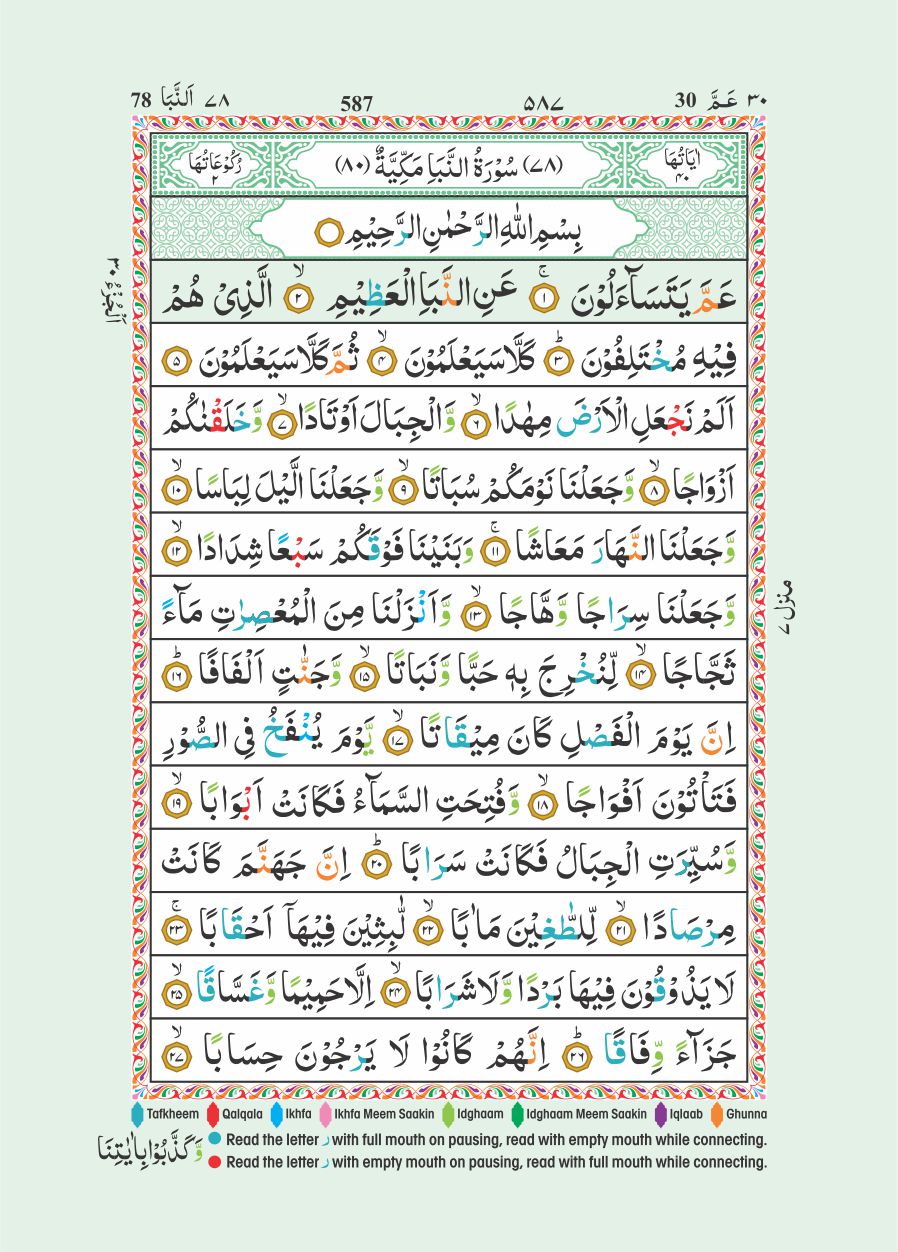 78 اَلنَّبَا ٧٨
587
۵۸۷
30 عَمَّ ٣٠
رُكُوْعَاتُهَا ٢
(٧٨) سُوْرَةُ النَّبَاِ مَكِّيَّةٌ (٨٠)
اٰيَاتُهَا ٤٠
بِسْمِ اللّٰهِ الرَّحْمٰنِ الرَّحِيْمِ
عَمَّ يَتَسَآءَلُوْنَ ۚ‏ ﴿١﴾ عَنِ النَّبَاِ الْعَظِيْمِۙ‏ ﴿٢﴾ الَّذِىْ هُمْ
فِيْهِ مُخْتَلِفُوْنَؕ‏ ﴿٣﴾ كَلَّا سَيَعْلَمُوْنَۙ‏ ﴿٤﴾ ثُمَّ كَلَّا سَيَعْلَمُوْنَ‏ ﴿٥﴾
اَلَمْ نَجْعَلِ الْاَرْضَ مِهٰدًاۙ‏ ﴿٦﴾ وَّالْجِبَالَ اَوْتَادًاۙ‏ ﴿٧﴾ وَّخَلَقْنٰكُمْ
اَزْوَاجًاۙ‏ ﴿٨﴾ وَّجَعَلْنَا نَوْمَكُمْ سُبَاتًاۙ‏ ﴿٩﴾ وَّجَعَلْنَا الَّيْلَ لِبَاسًاۙ‏ ﴿١٠﴾
وَّجَعَلْنَا النَّهَارَ مَعَاشًاۚ‏ ﴿١١﴾ وَبَنَيْنَا فَوْقَكُمْ سَبْعًا شِدَادًاۙ‏ ﴿١٢﴾
وَّجَعَلْنَا سِرَاجًا وَّهَّاجًاۙ‏ ﴿١٣﴾ وَّاَنْزَلْنَا مِنَ الْمُعْصِرٰتِ مَآءً
ثَجَّاجًاۙ‏ ﴿١٤﴾ لِّنُخْرِجَ بِهٖ حَبًّا وَّنَبَاتًاۙ‏ ﴿١٥﴾ وَّجَنّٰتٍ اَلْفَافًاؕ‏ ﴿١٦﴾
اِنَّ يَوْمَ الْفَصْلِ كَانَ مِيْقَاتًاۙ‏ ﴿١٧﴾ يَّوْمَ يُنْفَخُ فِى الصُّوْرِ
فَتَاْتُوْنَ اَفْوَاجًاۙ‏ ﴿١٨﴾ وَّفُتِحَتِ السَّمَآءُ فَكَانَتْ اَبْوَابًاۙ‏ ﴿١٩﴾
وَّسُيِّرَتِ الْجِبَالُ فَكَانَتْ سَرَابًاؕ‏ ﴿٢٠﴾ اِنَّ جَهَنَّمَ كَانَتْ
مِرْصَادًاۙ‏ ﴿٢١﴾ لِّلطّٰغِيْنَ مَاٰبًاۙ‏ ﴿٢٢﴾ لّٰبِثِيْنَ فِيْهَاۤ اَحْقَابًاۚ‏ ﴿٢٣﴾
لَا يَذُوْقُوْنَ فِيْهَا بَرْدًا وَّلَا شَرَابًاۙ‏ ﴿٢٤﴾ اِلَّا حَمِيْمًا وَّغَسَّاقًاۙ‏ ﴿٢٥﴾
جَزَآءً وِّفَاقًاؕ‏ ﴿٢٦﴾ اِنَّهُمْ كَانُوْا لَا يَرْجُوْنَ حِسَابًاۙ‏ ﴿٢٧﴾
اَلْجُزْءُ ٣٠
منزل ٧
Tafkheem Qalqala Ikhfa Ikhfa Meem Saakin Idghaam Idghaam Meem Saakin Iqlaab Ghunna
Read the letter ر with full mouth on pausing, read with empty mouth while connecting.
Read the letter ر with empty mouth on pausing, read with full mouth while connecting.
وَّكَذَّبُوْا بِاٰيٰتِنَا